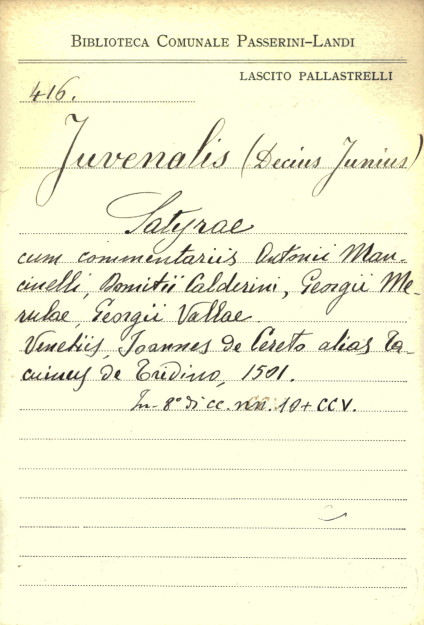 BIBLIOTECA COMUNALE PASSERINI-LANDI
LASCITO PALLASTRELLI
416.
Juvenalis (Decius Junius)
Satyrae
cum commentariis Antonii Man-
cinelli, Domitii Calderini, Georgii Me-
rulae, Georgii Vallae.
Venetiis, Joannes de Cereto alias Ta-
cuinus de Tridino, 1501.
In-8° di cc. nn. 10+CCV.